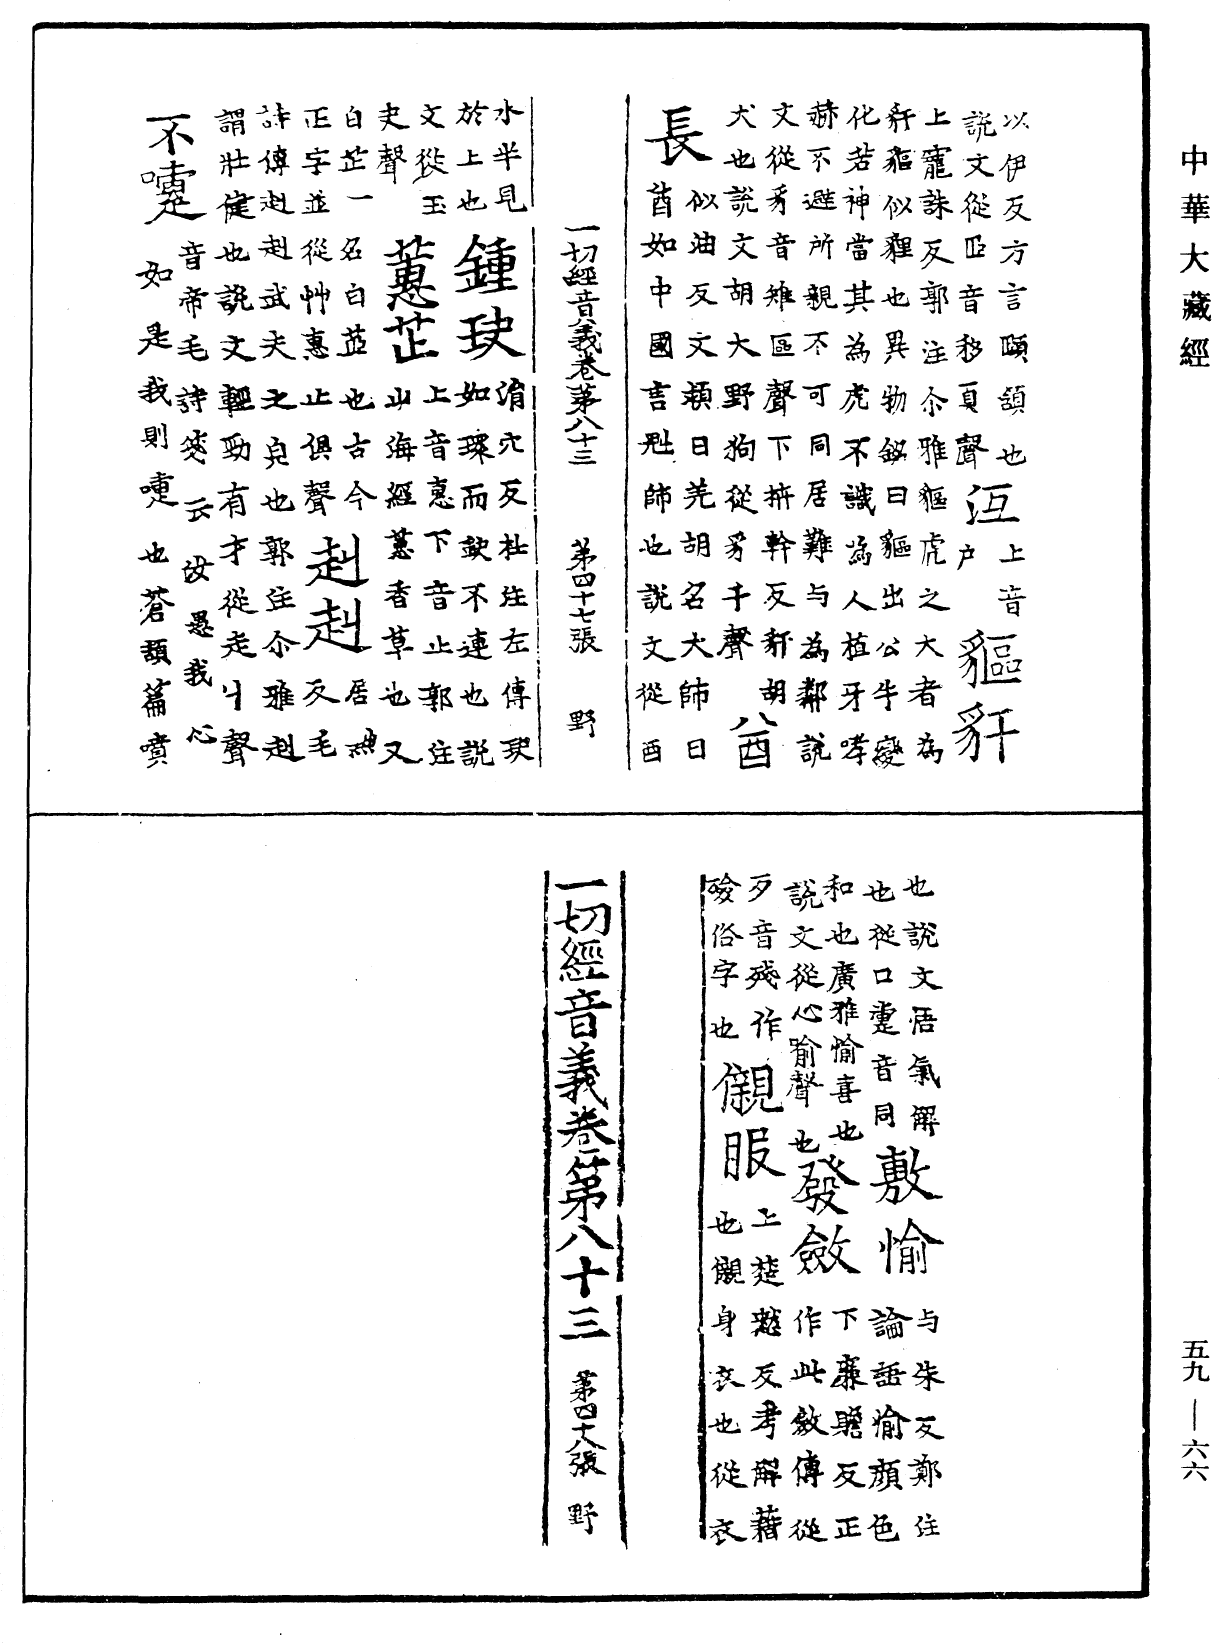 中華大藏經
以伊反方言頤頷也
說文從𦣝音移頁聲
沍 上音户
貙豻
上寵誅反郭注尒雅貙虎之大者為
豻貙似貍也異物銘曰貙出公牛變
化若神當其為虎不識為人植牙哮
赫不避所親不可同居難与為鄰說
文從豸音雉區聲下㧸幹反豻胡
犬也說文胡犬野狗從豸干聲
八酋
長
似油反文頴曰羌胡名大師曰
酋如中國言魁師也說文從酉
一切經音義卷第八十三 第四十七張 野
水半見
於上也
鍾玦
涓穴反杜注左傳玦
如環而缺不連也說
文從玉
夬聲
蕙芷
上音惠下音止郭注
山海經蕙香草也又
白芷一名白茝也古今
正字並從艸惠止俱聲
赳赳
居黝反毛
詩傳赳赳武夫之皃也郭注尒雅赳
謂壯健也說文輕勁有才從走丩聲
不嚏
音帝毛詩箋云汝思我心
如是我則嚏也蒼頡篇噴
也說文悟氣解
也從口疐音同
敷愉
与朱反鄭注
論語愉顏色
和也廣雅愉喜也
說文從心俞聲也
發斂
下廉瞻反正
作此斂傳從
歹音殘作
殮俗字也
儭服
上楚懃反考解藉
也儭身衣也從衣
一切經音義卷第八十三 第四十八張 野
五九—六六